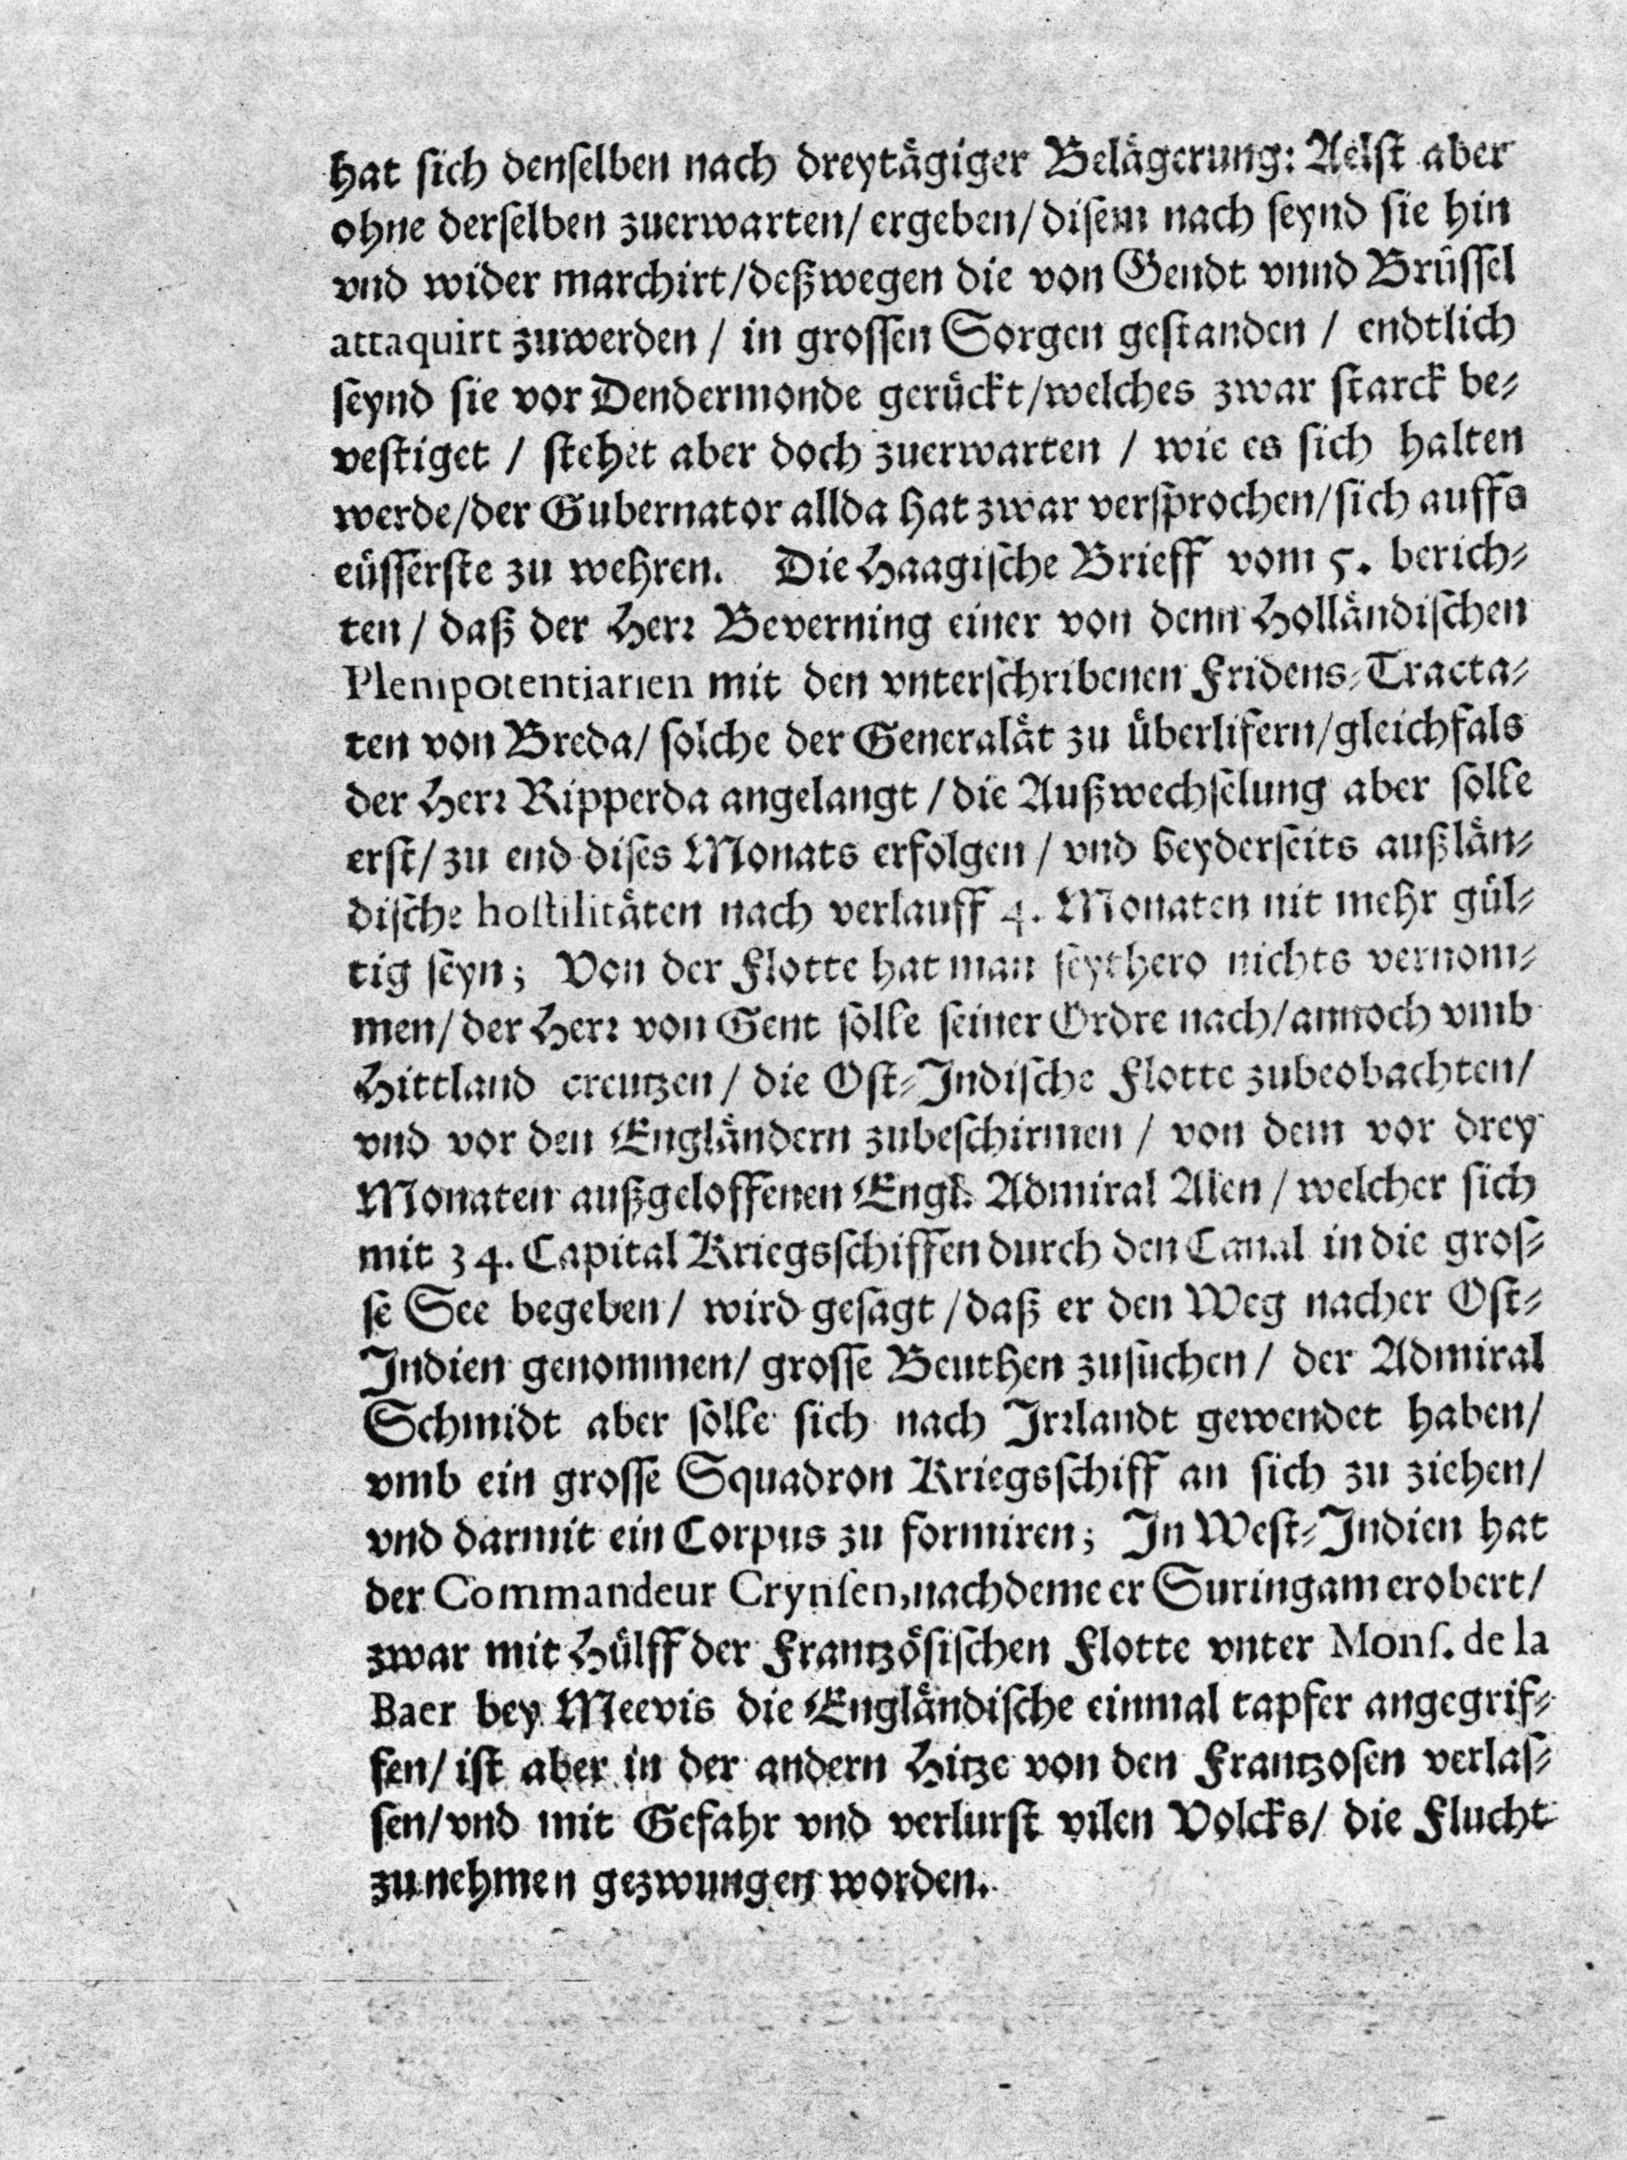 hat sich denſelben nach dreytägiger Belägerung: Aelst aber
ohne derſelben zuerwarten/ ergeben/ diſem nach ſeynd sie hin
vnd wider marchirt/deßwegen die von Gendt vnnd Brüſſel
attaquirt zuwerden / in groſſen Sorgen geſtanden / endtlich
ſeynd sie vor Dendermonde gerückt/welches zwar ſtarck be-
veſtiget / ſtehet aber doch zuerwarten / wie es sich halten
werde/der Gubernator allda hat zwar verſprochen/sich auffs
eüſſerſte zu wehren. Die Haagiſche Brieff vom 5. berich-
ten / daß der Herr Beverning einer von denn Holländiſchen
Plenipotentiarien mit den vnterſchribenen Fridens-Tracta-
ten von Breda/ ſolche der Generalät zu überlifern/gleichfals
der Herr Ripperda angelangt / die Außwechſelung aber ſolle
erſt/ zu end diſes Monats erfolgen / vnd beyderſeits außlän-
diſche hoſtilitäten nach verlauff 4. Monaten nit mehr gül-
tig ſeyn; Von der Flotte hat man ſeythero nichts vernom-
men/ der Herr von Gent ſolle ſeiner Ordre nach/ annoch vmb
Hittland creutzen / die Oſt-Indiſche Flotte zubeobachten/
vnd vor den Engländern zubeſchirmen / von dem vor drey
Monaten außgeloffenen Engl. Admiral Alen / welcher sich
mit 34. Capital Kriegsſchiffen durch den Canal in die groſ-
ſe See begeben/ wird geſagt / daß er den Weg nacher Oſt-
Indien genommen/ groſſe Beuthen zuſuchen / der Admiral
Schmidt aber ſolle sich nach Irrlandt gewendet haben/
vmb ein groſſe Squadron Kriegsſchiff an sich zu ziehen/
vnd darmit ein Corpus zu formiren; In Weſt-Indien hat
der Commandeur Crynſen, nachdeme er Suringam erobert/
zwar mit Hülff der Frantzöſiſchen Flotte vnter Monſ. de la
Baer bey Meevis die Engländiſche einmal tapfer angegrif-
fen/ iſt aber in der andern Hitze von den Frantzoſen verlaſ-
ſen/vnd mit Gefahr vnd verlurſt vilen Volcks/ die Flucht
zu nehmen gezwungen worden.